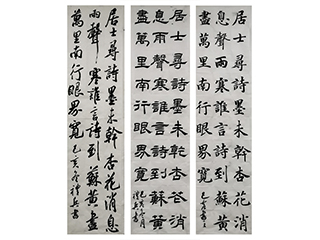 居士尋詩墨未幹杏花消
息雨聲寒誰言詩到蘇黃
盡萬里南行眼界寬
己亥
居士尋詩墨未幹杏花消
息雨聲寒誰言詩到蘇黃
盡萬里南行眼界寬
居士尋詩墨未幹杏花消息
雨聲寒誰言詩到蘇黃盡
萬里南行眼界寬
己亥冬